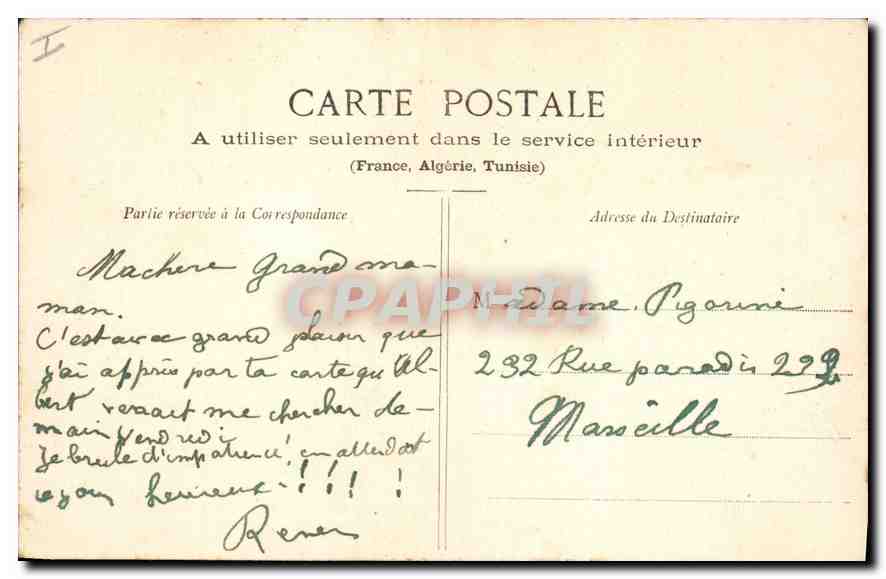 I
CARTE POSTALE
A utiliser seulement dans le service intérieur
(France, Algérie, Tunisie)
Partie réservée à la Correspondance
Machere grand ma-
man.
C'est avec grand plaisir que
j'ai appris par ta carte qu'Al-
bert venait me chercher de-
main vendredi
Je brule d'impatience! en attendant
ce jour heureux !!!!
Adresse du Destinataire
Madame. Pigorini
232 Rue paradis 232
Marseille
CPAPHIL